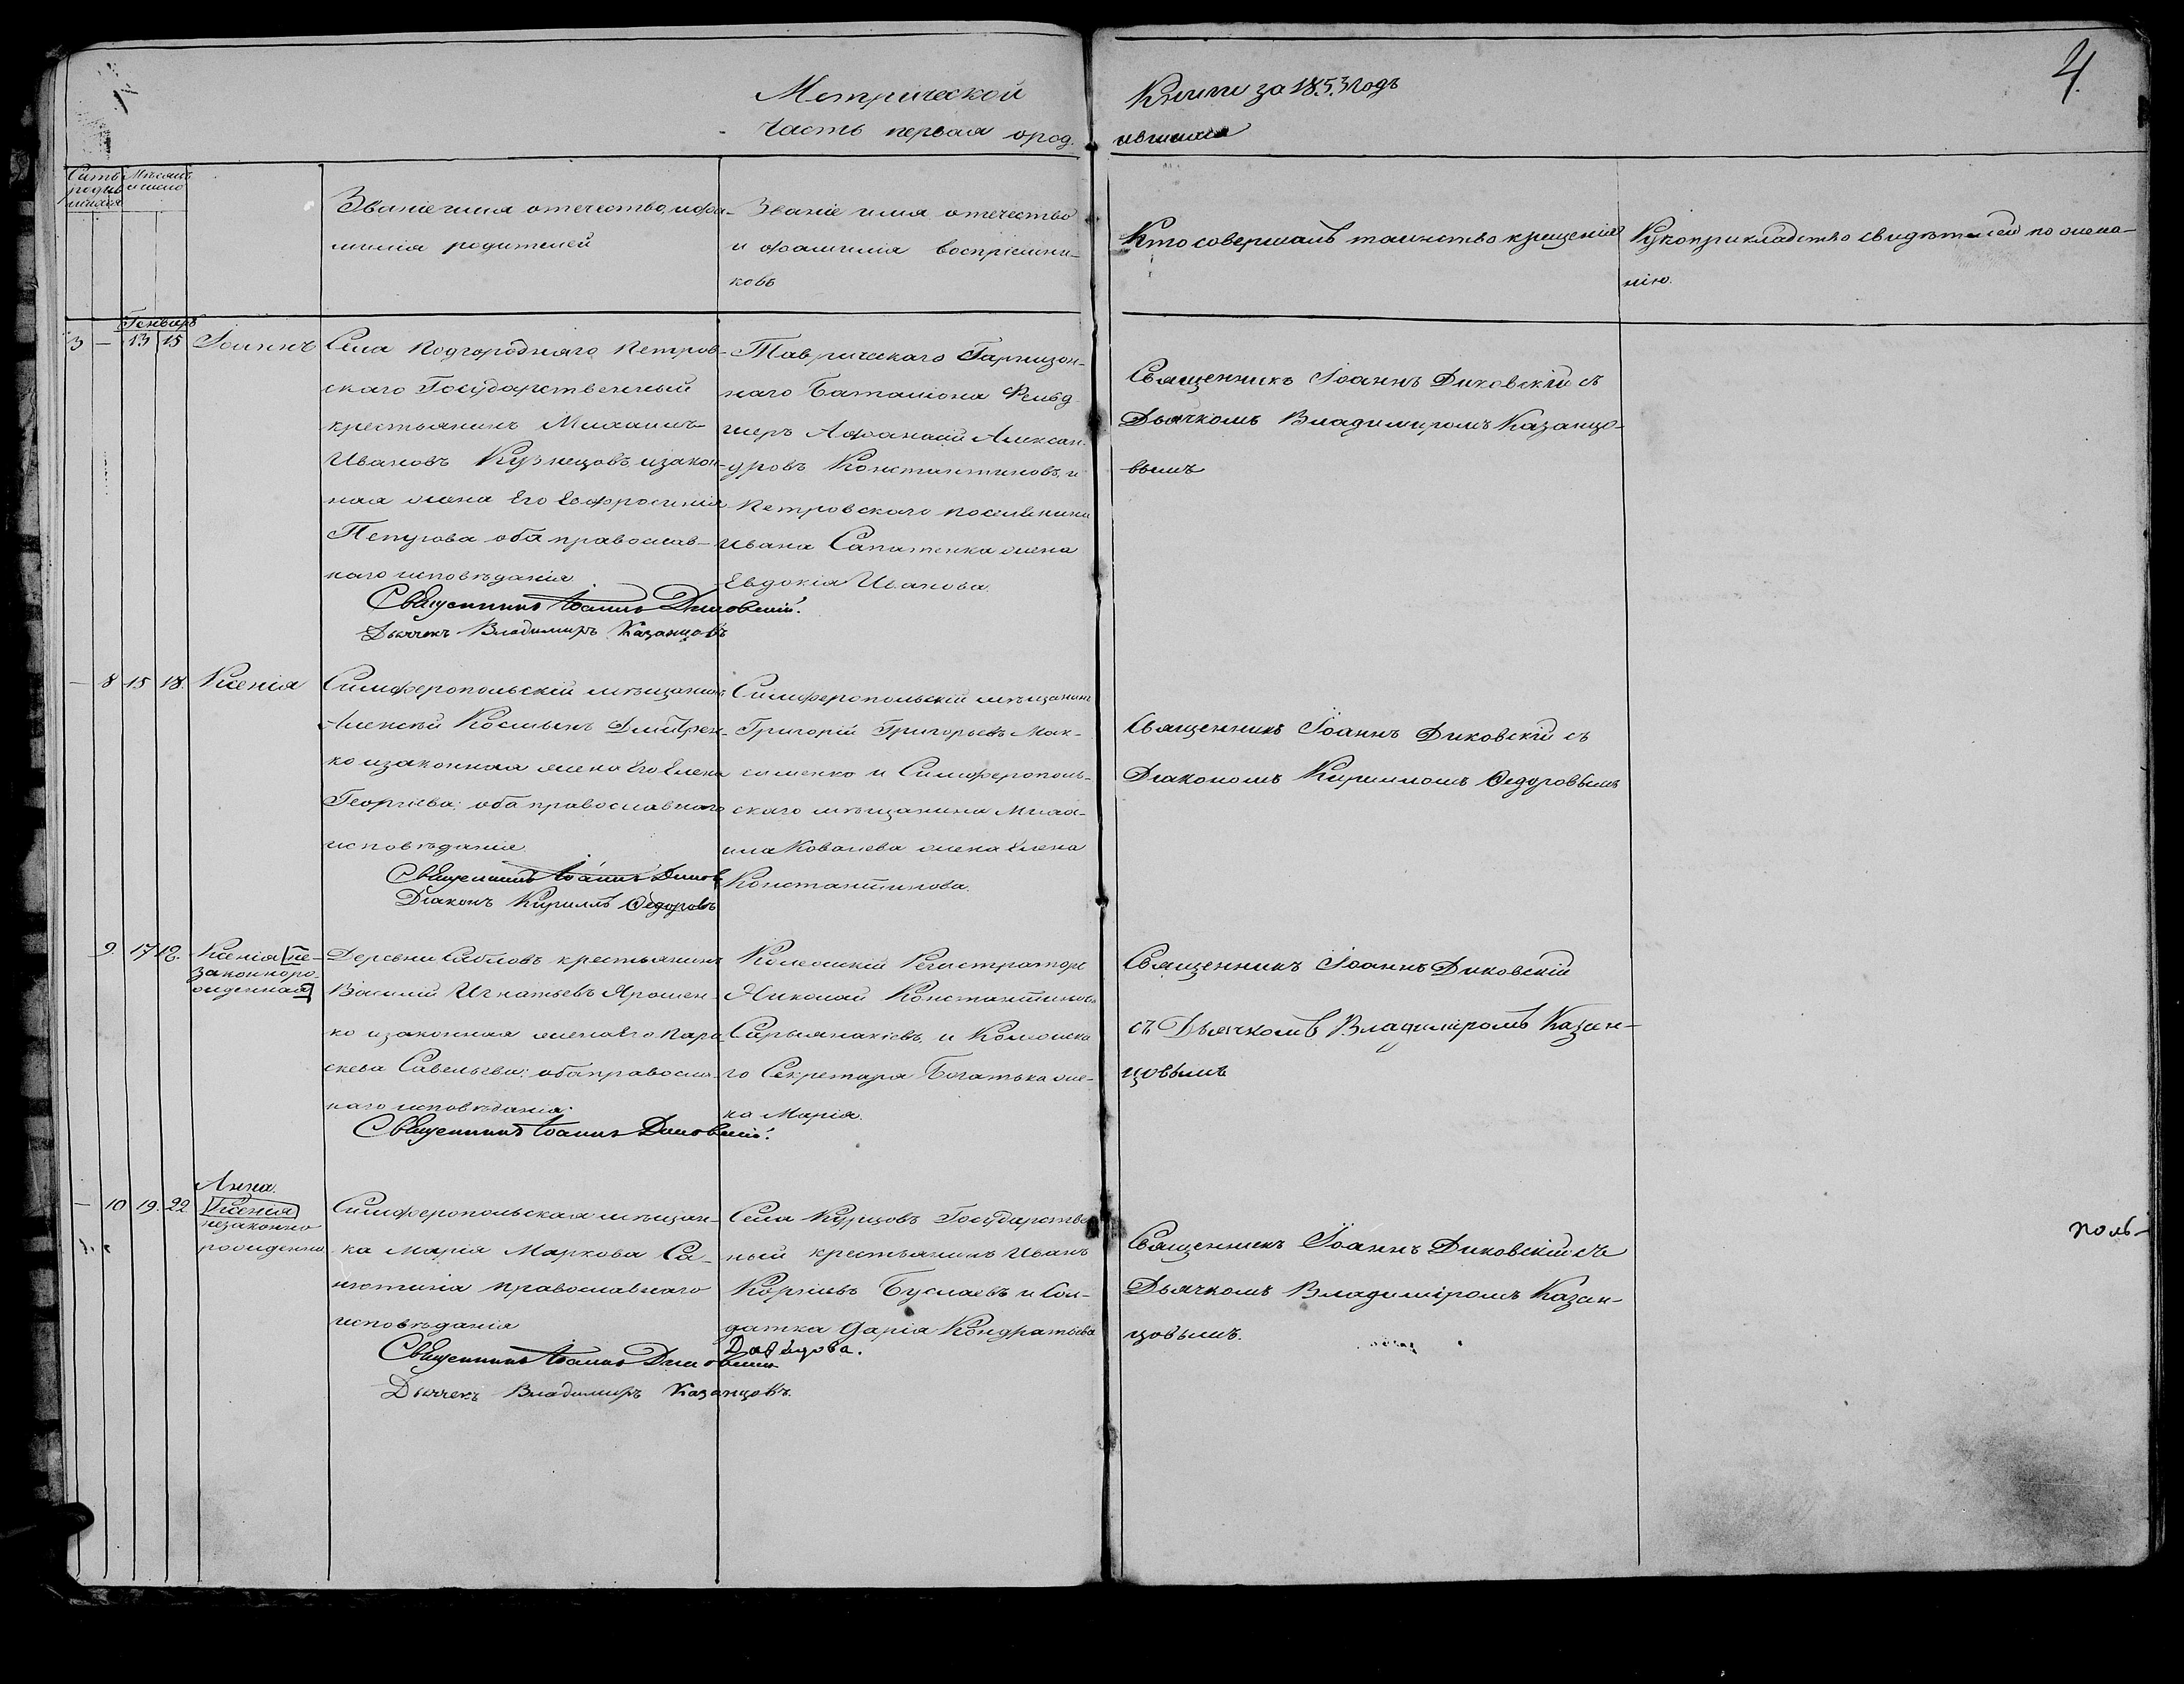 4.
Метрической Книги за 1853 годъ
Часть первая о родившихся
Счетъ родившихся
Мѣсяцъ и число
Званіе имя отечество, и фа-
милія родителей
Званіе имя отечество
и фамилія воспріемни-
ковъ
Кто совершалъ таинство крещенія
Рукоприкладство свидѣтелей по жела-
нію.
Генварь
3 — 13 15 Іоаннъ
Села Подгороднаго Петров-
скаго Государственный
крестьянинъ Михаилъ
Ивановъ Кузнецовъ и закон-
ная жена Его Евфросинія
Пепугова оба православ-
наго исповѣданія
Священникъ Іоаннъ Диковскій.
Дьячекъ Владимиръ Казанцовъ
Таврическаго Гарнизон-
наго Баталіона Фельд
шеръ Афанасій Алексан-
дровъ Константиновъ, и
Петровскаго поселянина
Ивана Сапатенка жена
Евдокія Иванова.
Священникъ Іоаннъ Диковскій съ
Дьячкомъ Владимиромъ Казанцо-
вымъ
— 8 15 18. Ксенія
Симферопольскій мѣщанинъ
Алексѣй Космынъ Дмитрен-
ко и законная жена Его Елена
Георгіева: оба православнаго
исповѣданіе.
Священникъ Іоаннъ Диков
Діаконъ Кириллъ Федоровъ
Симферопольскій мѣщанинъ
Григорій Григорьевъ Мак-
сименко и Симферополь-
скаго мѣщанина Миха-
ила Ковалева жена Елена
Константинова.
Священникъ Іоаннъ Диковскій съ
Діакономъ Кирилломъ Федоровымъ
9. 17 18. Ксенія [не-
законноро-
жденная]
Деревни Сабловъ крестьянинъ
Василій Игнатьевъ Ярошен-
ко и законная жена Его Пара
скева Савельева: оба правосла-
наго исповѣданія.
Священникъ Іоаннъ Диковскій.
Колежскій Регистраторъ
Николай Константиновъ
Сарыянакіевъ, и Колежска
го Секретаря Богатька же-
на Марія.
Священникъ Іоаннъ Диковскій
съ Дьячкомъ Владиміромъ Казан-
цовымъ
— 10 19. 22 Анна.
[Ксенія]
незаконно
рожденна
Симферопольская мѣщан-
ка Марія Маркова Са-
нютина православнаго
исповѣданія
Священникъ Іоаннъ Диковскій
Дьячекъ Владимиръ Казанцовъ.
Села Курцовъ Государстве
ный крестьянинъ Иванъ
Корніевъ Буслаевъ и Сол-
датка Дарія Кондратьева
Давидова.
Священникъ Іоаннъ Диковскій съ
Дьячкомъ Владиміромъ Казан-
цовымъ.
поль-